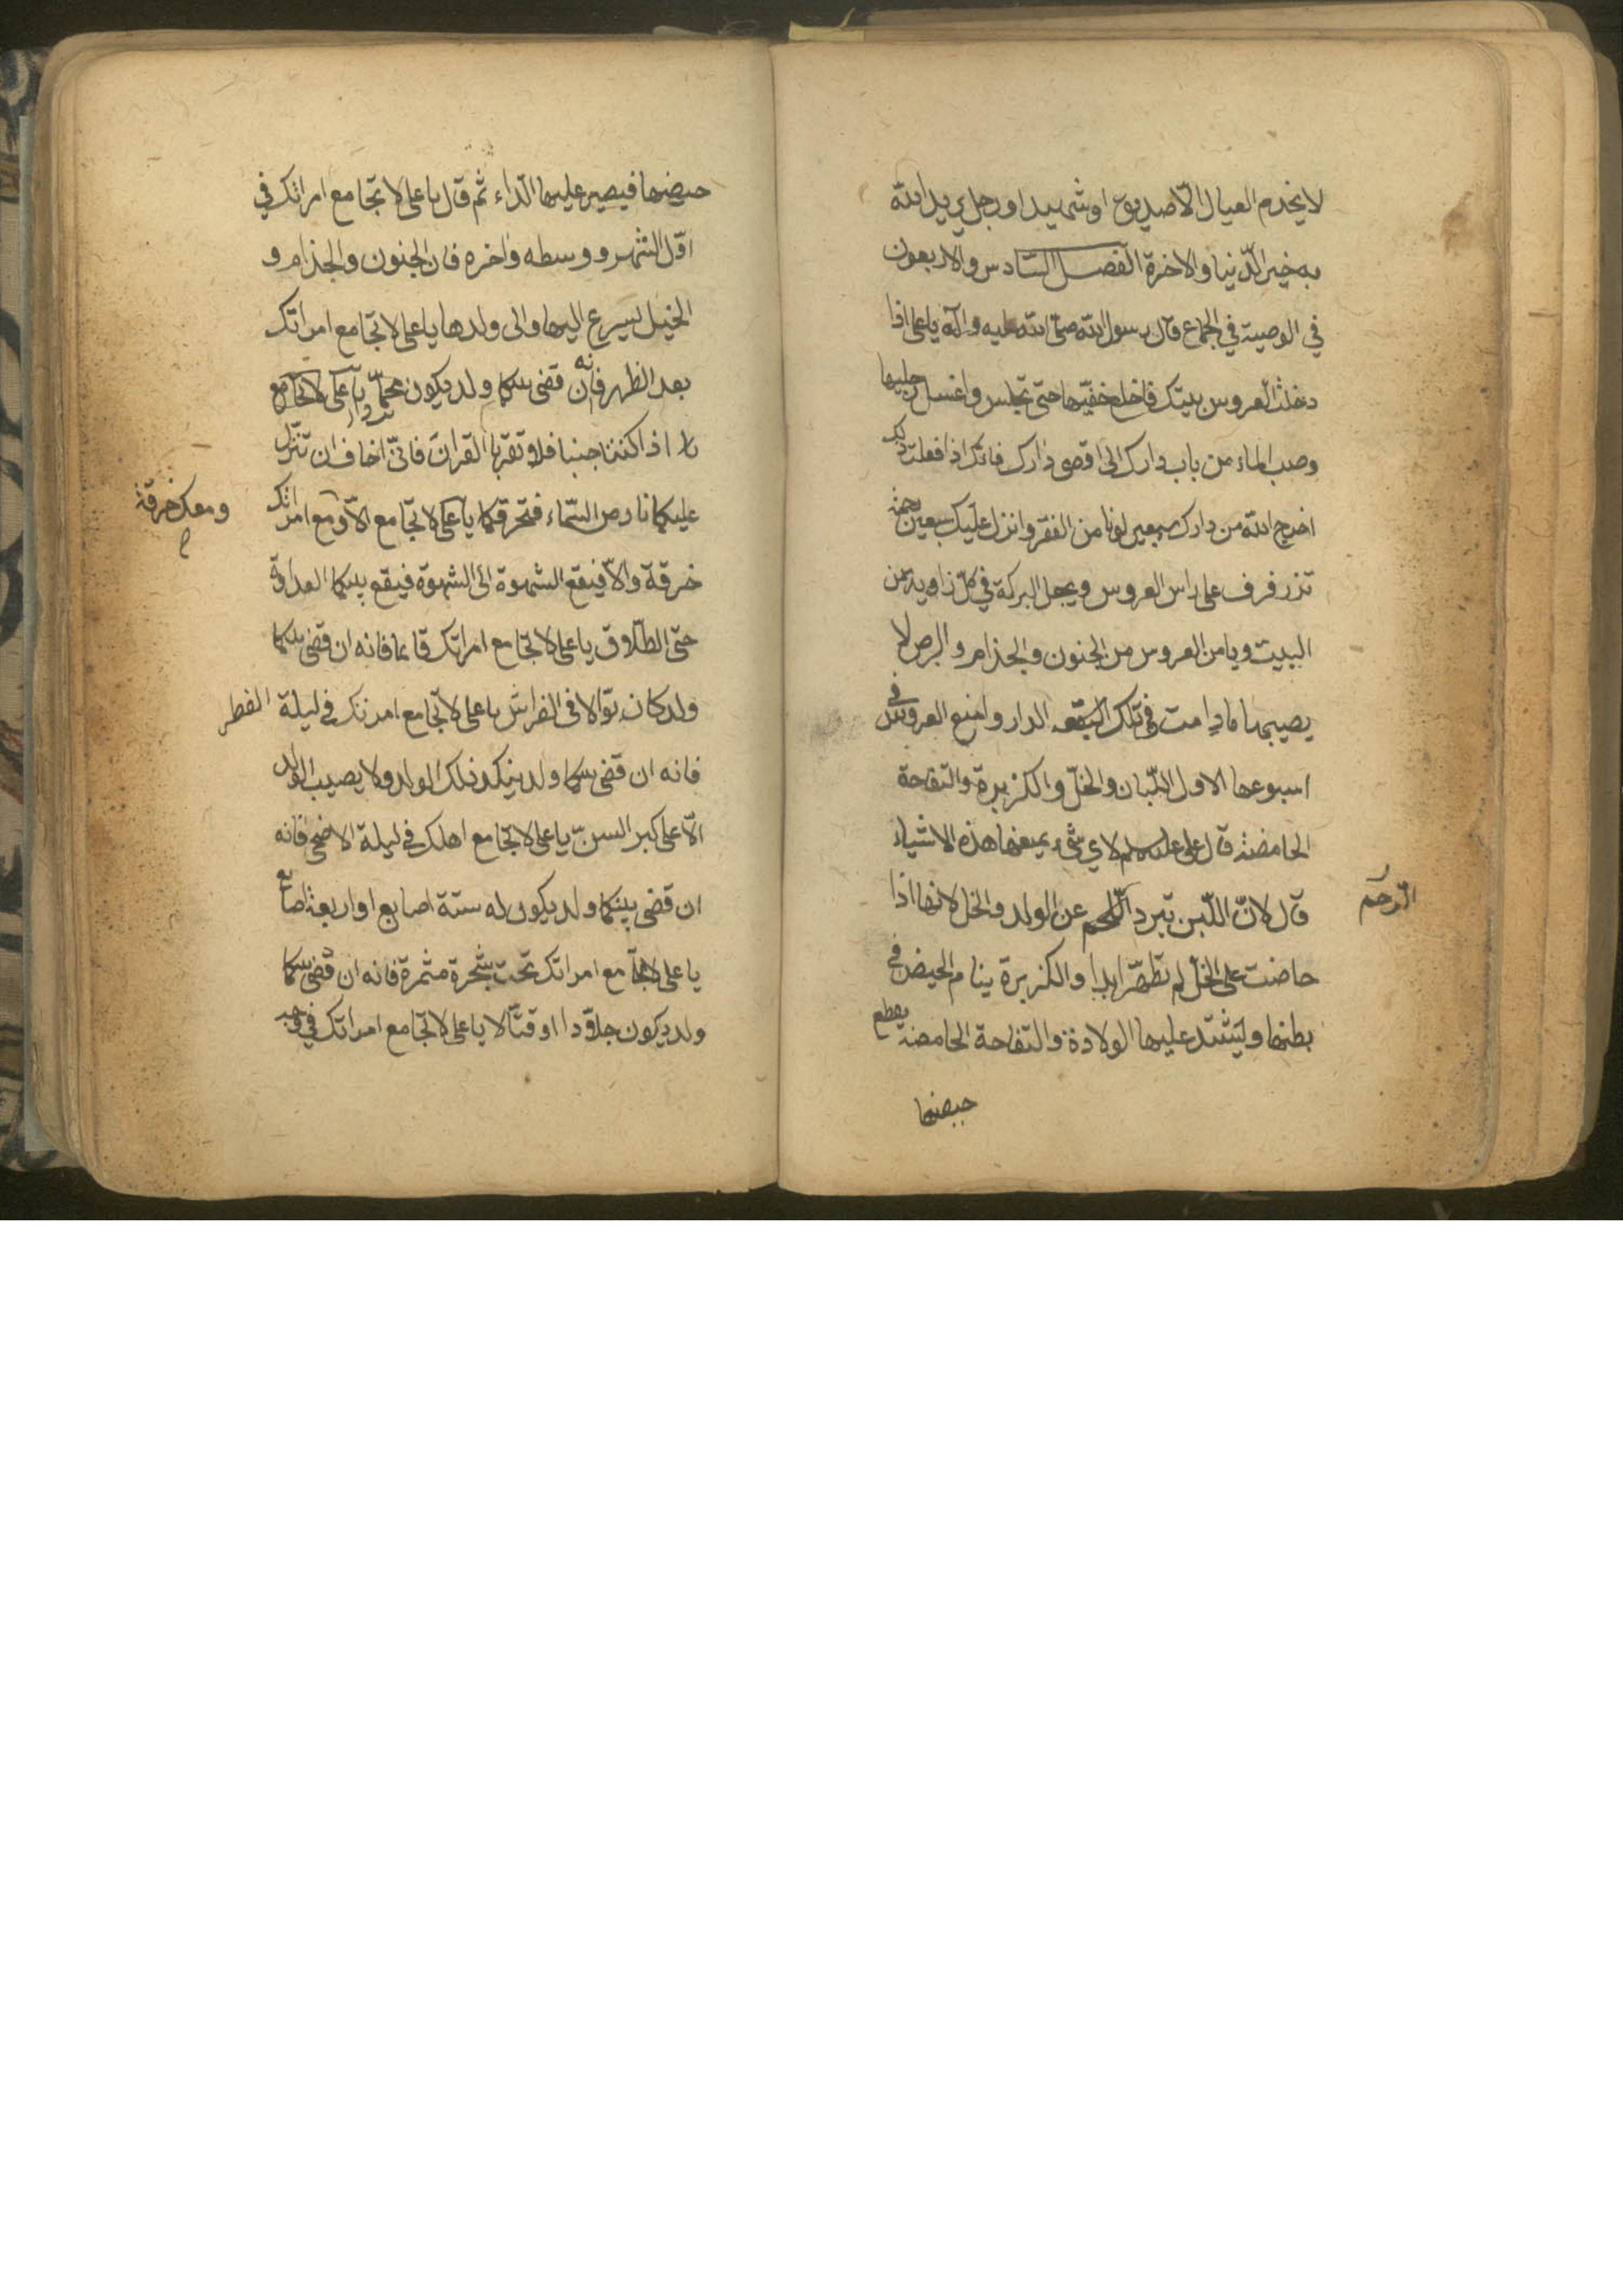 لا يخدم العيال الّا صديق او شهيد او رجل يريد الله
به خير الدّنيا والاخرة الفصل السّادس والاربعون
في الوصية في الجماع قال رسول الله صلّى الله عليه وآله يا على اذا
دخلت العروس بيتك فاخلع خفّيها حتّى تجلس واغسل رجليها
وصب الماء من باب دارك الى اقصى دارك فانّك اذا فعلت ذلك
اخرج الله من دارك سبعين لونا من الفقر وانزل عليك سبعين رحمة
تزرفرف على راس العروس ويجعل البركة في كلّ زاوية من
البيت ويامن العروس من الجنون والجذام والبرص لا
يصيبها ما دامت في تلك الدار وامنع العروس في
اسبوعها الاول اللّبان والخلّ والكزبرة والتفاحة
الحامضة قال على عليه السلم لاي شىء يمنعها هذه الاشياء
قال لانّ اللّبن تبرد اللّحم عن الولد والخل لانها اذا
الرّحم
حاضت على الخلّ لم تطهّر ابدا والكزبرة ينام الحيض في
بطنها وليشتدّ عليها الولادة والتفاحة الحامضة يقطع
حيضها
حيضها فيصير عليها الدّاء ثم قال يا على لا تجامع امراتك في
اوّل الشهر ووسطه واخره فان الجنون والجذام و
الخبل ليسرع اليها والى ولدها يا على لا تجامع امراتك
بعد الظهر فانه ان قضى بينكما ولد يكون يا على لا تجامع
اذا كنتما جنبا فلا تقربا القران فانّى اخاف ان تنزل
عليكما نار من السّماء فتحرقكما يا على لا تجامع الّا ومع امراتك
ومعك خرقة
خرقة والّا فيقع الشهوة الى الشهوة فيقع بينكما العداوة
حتى الطلاق يا على لا تجامع امراتك قايما فانه ان قضى بينكما
ولد كان بوّالا فى الفراش يا على لا تجامع امرتك في ليلة الفطر
فانه ان قضى بينكما ولد ينكد ذلك الولد ولا يصيب الولد
الّا على كبر السنّ يا على لا تجامع اهلك في ليلة الاضحى فانه
ان قضى بينكما ولد يكون له ستة اصابع او اربعة اصابع
يا على لا تجامع امراتك تحت شجرة مثمرة فانه ان قضى بينكما
ولد يكون جلّادا او قتّالا يا على لا تجامع امراتك في